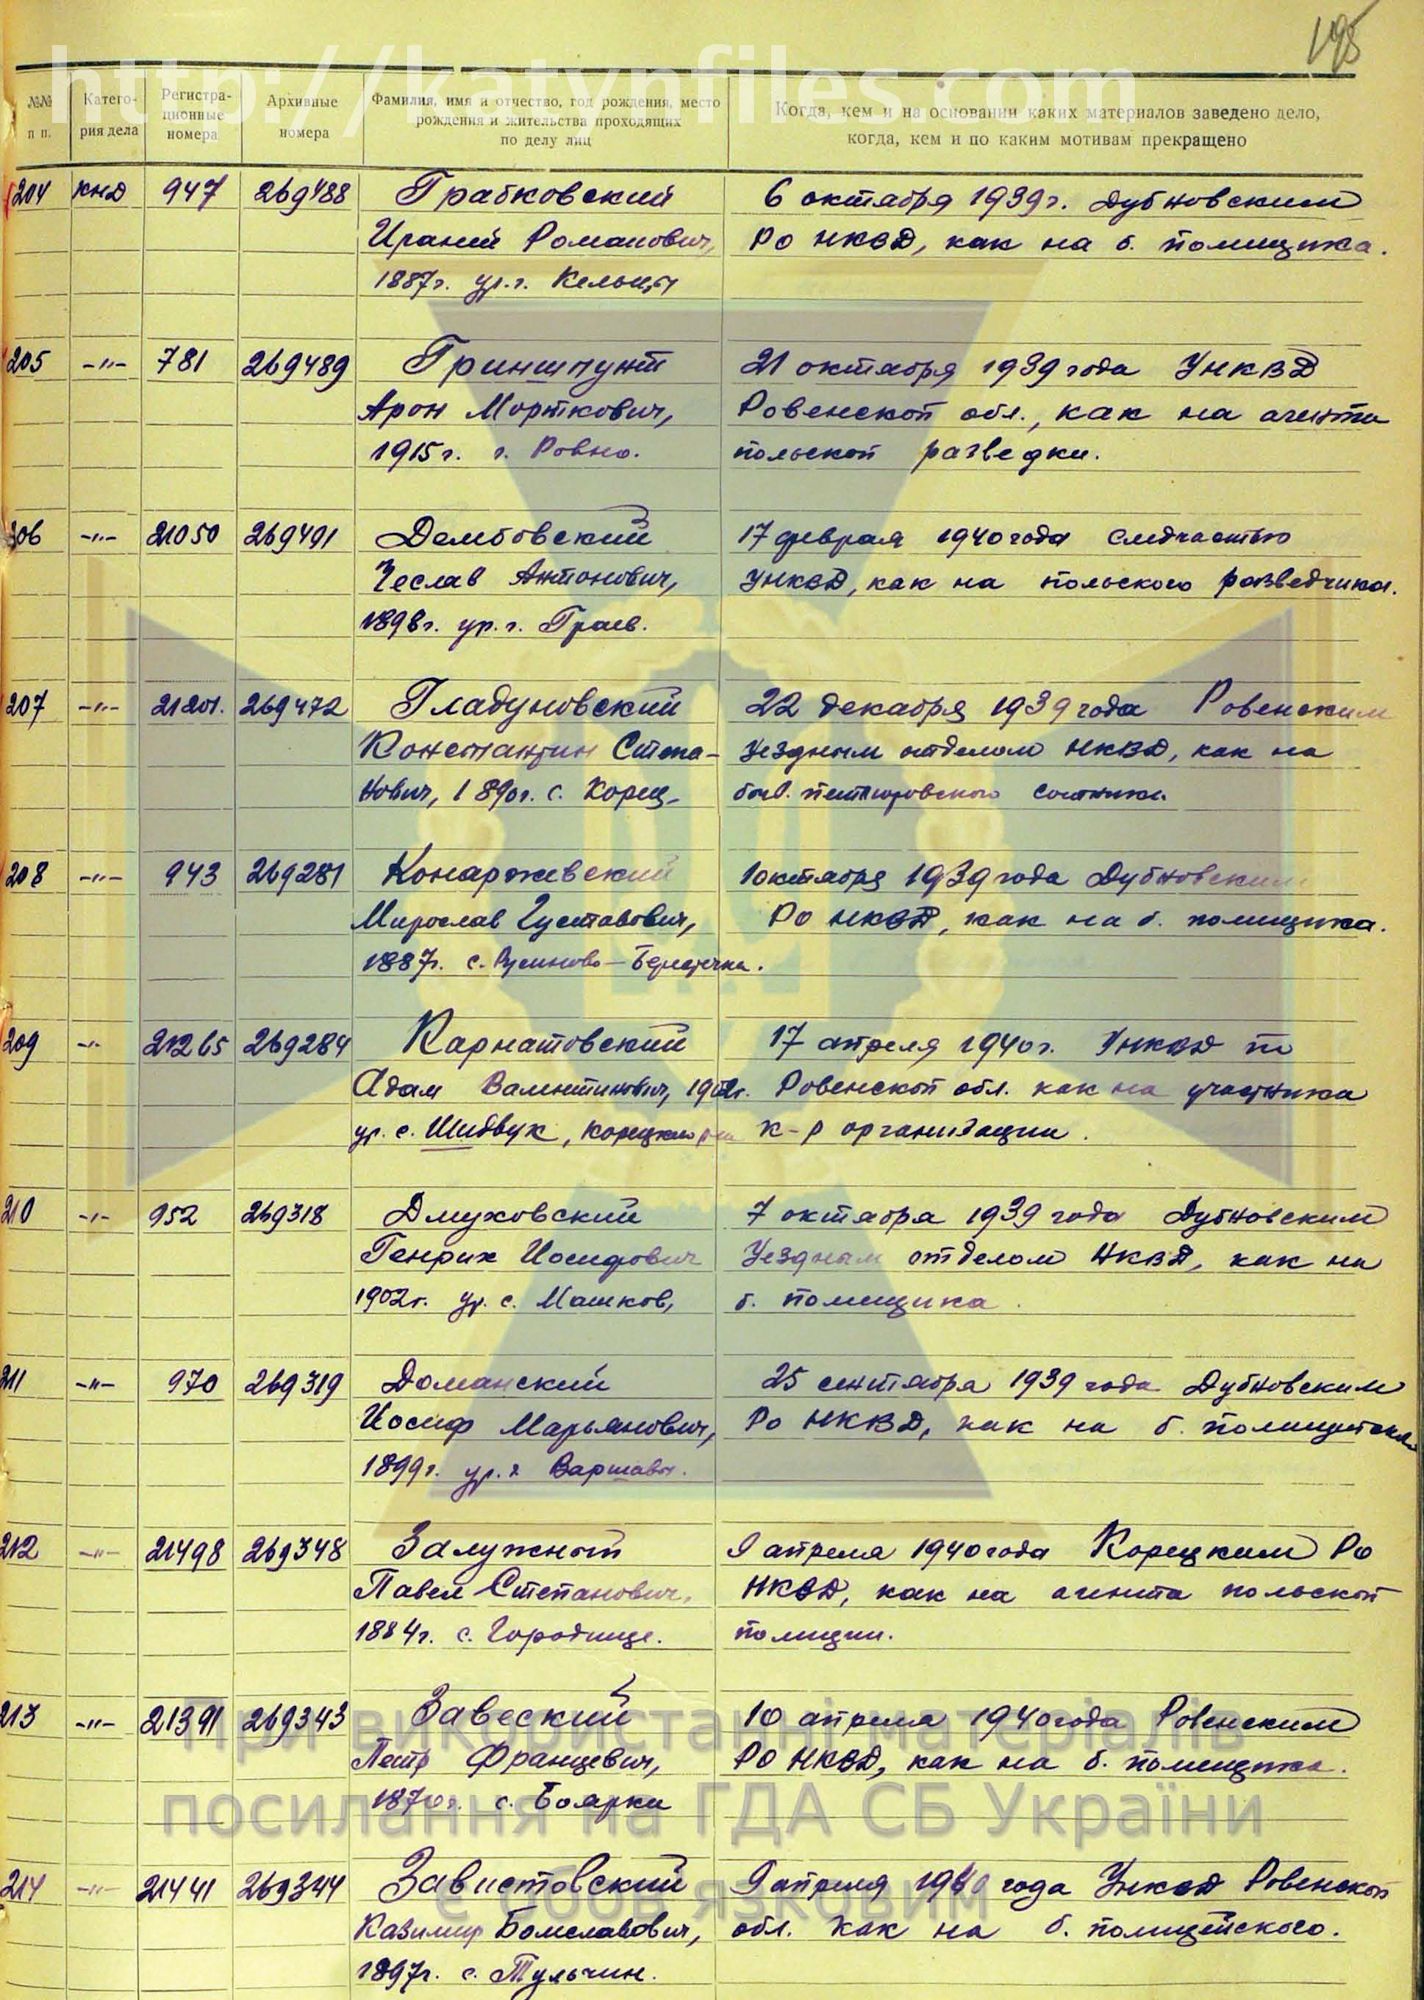 195
http://katynfiles.com
№№ п п.
Катего- рия дела
Регистра- ционные номера
Архивные номера
Фамилия, имя и отчество, год рождения, место рождения и жительства проходящих по делу лиц
Когда, кем и на основании каких материалов заведено дело, когда, кем и по каким мотивам прекращено
204 КНД 947 269488 Грабковский 6 октября 1939 г. Дубновским
Романович, РО НКВД, как на б. помещика.
1887 г. ур. г. Кельцы
205 -"- 781 269489 Гриншпунт 21 октября 1939 года УНКВД
Арон Морткович, Ровенской обл., как на агента
1915 г. г. Ровно. польской разведки.
206 -"- 21050 269491 Дембовский 17 февраля 1940 года следчастью
Чеслав Антонович, УНКВД, как на польского разведчика.
1898 г. ур. г. Граев.
207 -"- 21201. 269472 Гладуновский 22 декабря 1939 года Ровенским
Константин Степа- Уездным отделом НКВД, как на
нович, 1890 г. с. Корец. петлюровского сотника.
208 -"- 943 269281 Конаржевский 1 октября 1939 года Дубновским
Мирослав Густавович, РО НКВД, как на б. помещика.
1887 г. с.
209 -"- 21265 269284 Карнатовский 17 апреля 1940 г. УНКВД по
Адам Валентинович, 1902 г. Ровенской обл. как на участника
ур. с. Корецкого р-на к-р организации.
210 -"- 952 269318 Дмуховский 7 октября 1939 года Дубновским
Генрих Иосифович Уездным отделом НКВД, как на
1902 г. ур. с. Машков, б. помещика.
211 -"- 970 269319 Доманский 25 сентября 1939 года Дубновским
Иосиф Марьянович, РО НКВД, как на б.
1899 г. ур. г. Варшавы.
212 -"- 21498 269348 Залужный 9 апреля 1940 года Корецким РО
Павел Степанович, НКВД, как на агента польской
1884 г. с. Городище. полиции.
213 -"- 21391 269343 Завеский 10 апреля 1940 года Ровенским
Петр Францевич, РО НКВД, как на б. помещика.
1870 г. с. Боярка
214 -"- 21441 269344 Завистовский 9 апреля 1940 года УНКВД Ровенской
Казимир Болеславович, обл. как на б. полицейского.
1897 г. с. Тульчин.
При використанні матеріалів
посилання на ГДА СБ України
є обов'язковим